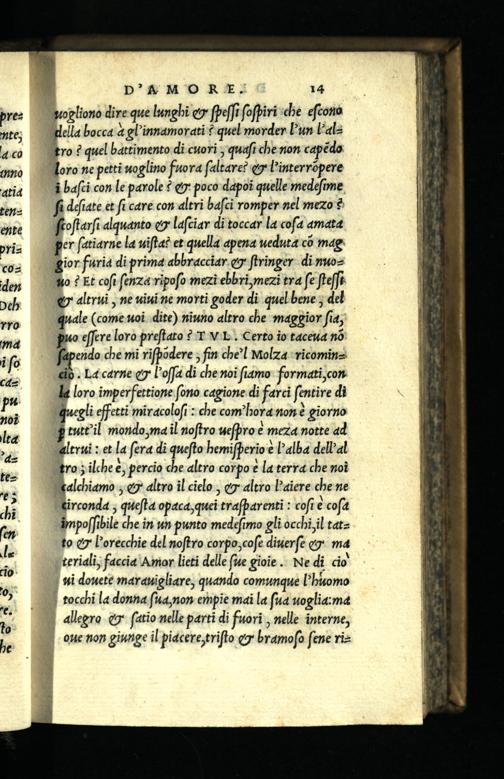 D'AMORE. 14
pre=
ente,
la co
anno
ratia
ten=
ente
pri=
co=
iden
Deh
rro
ma
pi so
ca=
pu
noi
olta
'a=
te=
re;
chi
sen
Ale=
cio
to,
re.
sto
he
uogliono dire que lunghi & spessi sospiri che escono
della bocca à gl'innamorati? quel morder l'un l'al=
tro? quel battimento di cuori, quasi che non capēdo
loro ne petti uoglino fuora saltare? & l'interrōpere
i basci con le parole? & poco dapoi quelle medesime
si desiate et si care con altri basci romper nel mezo?
scostarsi alquanto & lasciar di toccar la cosa amata
per satiarne la uista? et quella apena ueduta cō mag
gior furia di prima abbracciar & stringer di nuo=
uo? Et cosi senza riposo mezi ebbri, mezi tra se stessi
& altrui, ne uiui ne morti goder di quel bene, del
quale (come uoi dite) niuno altro che maggior sia,
puo essere loro prestato? TVL. Certo io taceua nō
sapendo che mi rispōdere, fin che'l Molza ricomin=
ciò. La carne & l'ossa di che noi siamo formati, con
la loro imperfettione sono cagione di farci sentire di
quegli effetti miracolosi: che com'hora non è giorno
ꝑ tutt'il mondo, ma il nostro uespro è meza notte ad
altrui: et la sera di questo hemisperio è l'alba dell'al
tro; ilche è, percio che altro corpo è la terra che noi
calchiamo, & altro il cielo, & altro l'aiere che ne
circonda, questa opaca, quei trasparenti: cosi è cosa
impossibile che in un punto medesimo gli occhi, il tat=
to & l'orecchie del nostro corpo, cose diuerse & ma
teriali, faccia Amor lieti delle sue gioie. Ne di ciò
ui douete marauigliare, quando comunque l'huomo
tocchi la donna sua, non empie mai la sua uoglia: ma
allegro & satio nelle parti di fuori, nelle interne,
oue non giunge il piacere, tristo & bramoso sene ri=